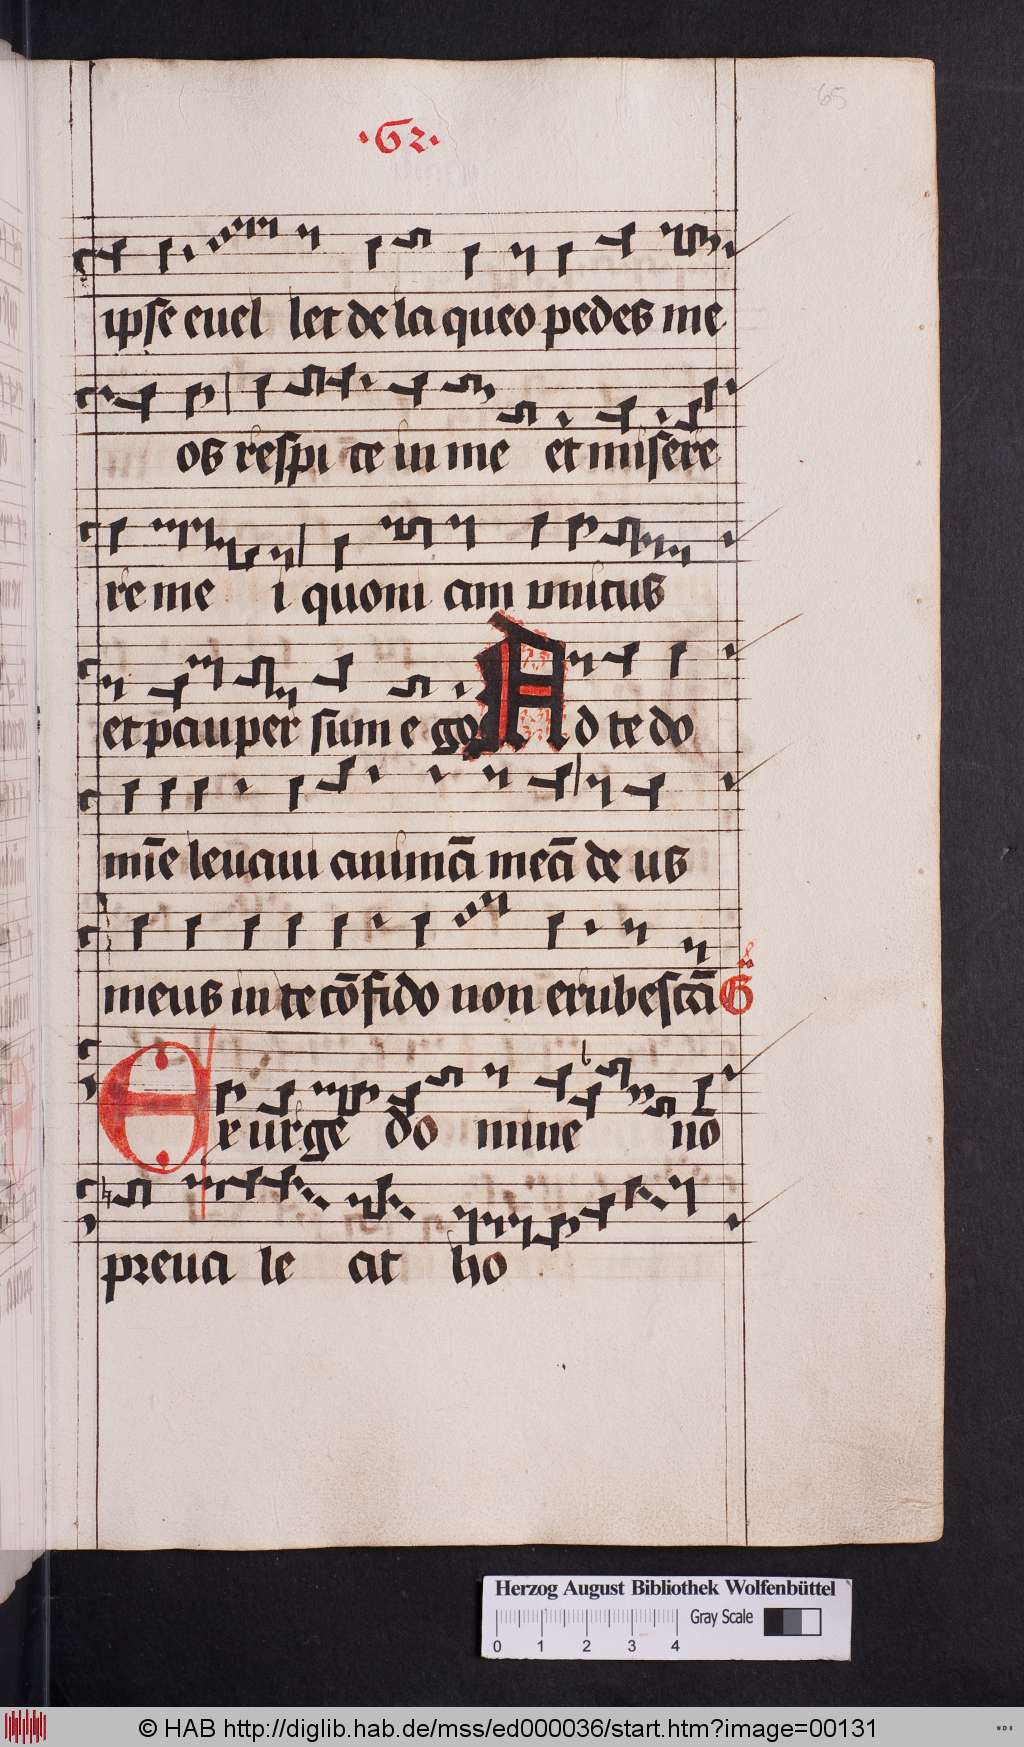 65
·62·
ipse euel let de la queo pedes me
os respi te in me et misere
re me i quoni am vnicus
et pauper sum e go Ad te do
mīe leuaui animā meā de us
meus in te cōfido non erubescā G
Exurge do mine no
preua le at ho
Herzog August Bibliothek Wolfenbüttel
Gray Scale
0 1 2 3 4
© HAB http://diglib.hab.de/mss/ed000036/start.htm?image=00131